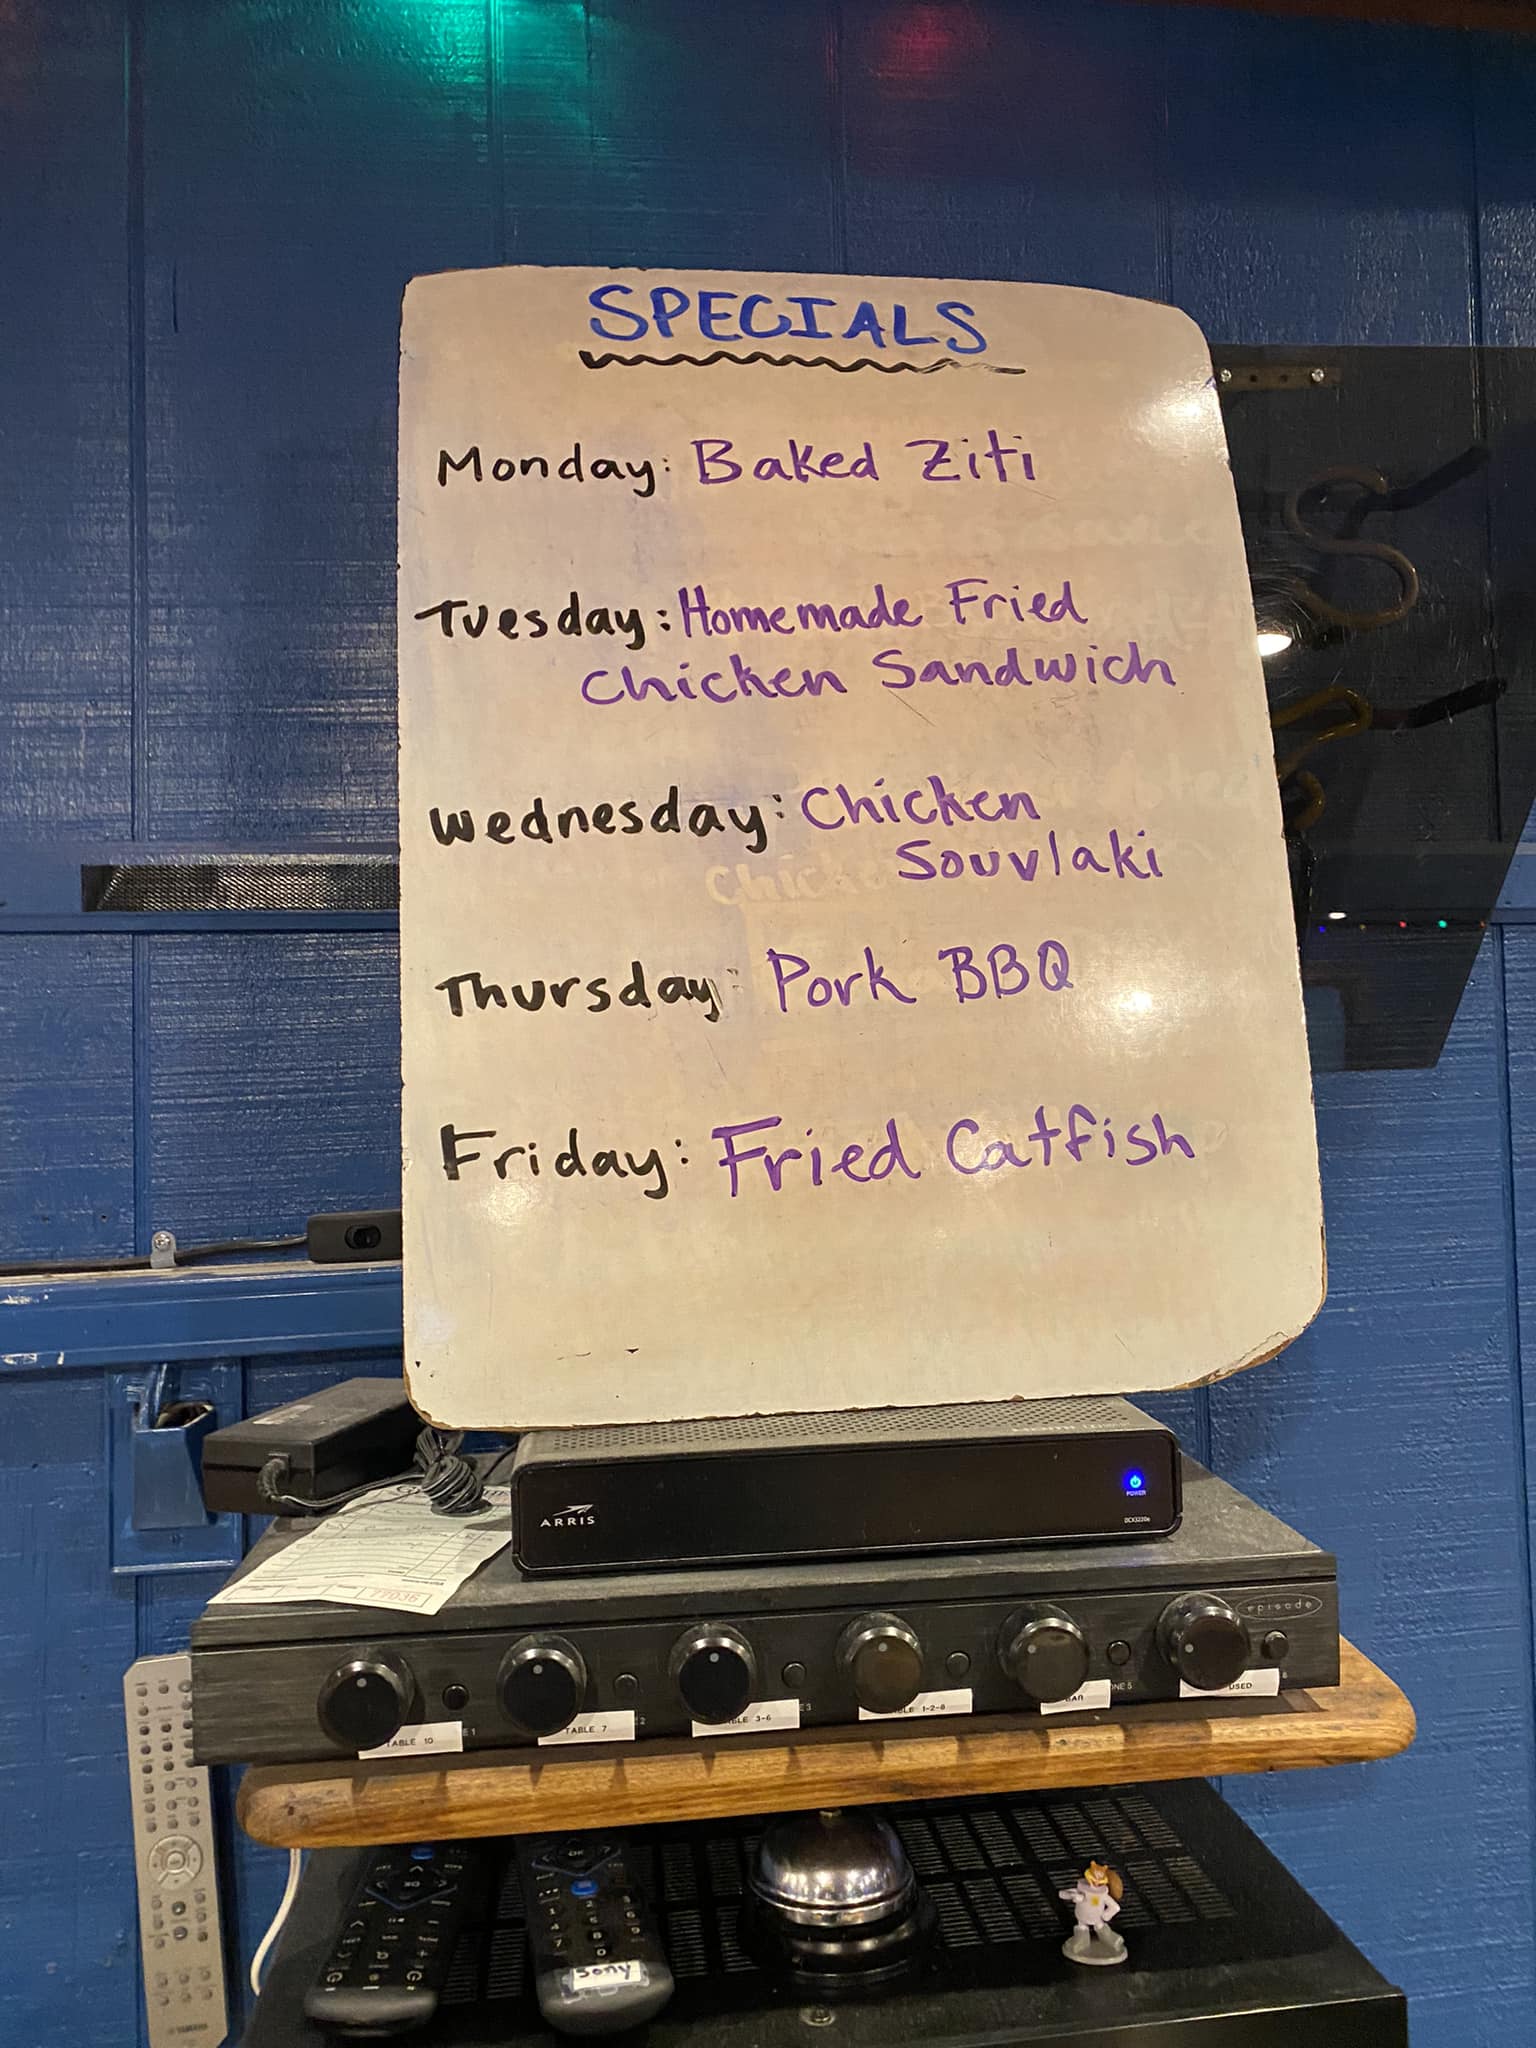 SPECIALS
Monday: Baked Ziti
Tuesday: Homemade Fried
Chicken Sandwich
Wednesday: Chicken
Souvlaki
Thursday: Pork BBQ
Friday: Fried Catfish
ARRIS
POWER
episode
TABLE 10
TABLE 7
3-6
1-2-8
BAR
USED
Sony
YAMAHA